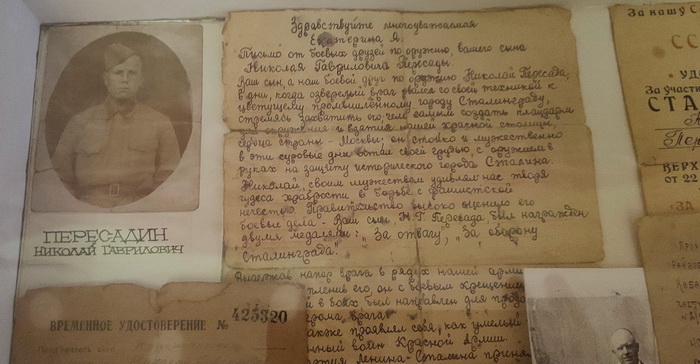 Здравствуйте многоуважаемая
Екатерина Я.
Письмо от боевых друзей по оружию, вашего сына
Николая Гавриловича Пересады.
Ваш сын, а наш боевой друг по оружию Николай Пересада,
в дни, когда озверелый враг рвался со своей техникой к
цветущему промышленному городу Сталинграду,
стремясь захватить его, чем самым создать плацдарм
для окружения и взятия нашей красной столицы,
сердца страны - Москвы; он стойко и мужественно
в эти суровые дни встал своей грудью с оружием в
руках на защиту исторического города Сталина.
Николай, своим мужеством удивлял нас творя
чудеса храбрости в борьбе с фашистской
нечестью. Правительство высоко оценило его
боевые дела - Ваш сын Н.Г. Пересада, был награжден
двумя медалями: „За отвагу", „За оборону
Сталинграда."
Выдержав напор врага в рядах нашей арми
его, он с боевым крещением
в боях был направлен для
врага
также проявлял себя, как умелый
воин Красной Армии.
Ленина-Сталина
ПЕРЕСАДИН
НИКОЛАЙ ГАВРИЛОВИЧ
ВРЕМЕННОЕ УДОСТОВЕРЕНИЕ № 425320
За нашу С
СС
УД
За участи
СТА
Пер
ВЕРХ
от 22
ЗА